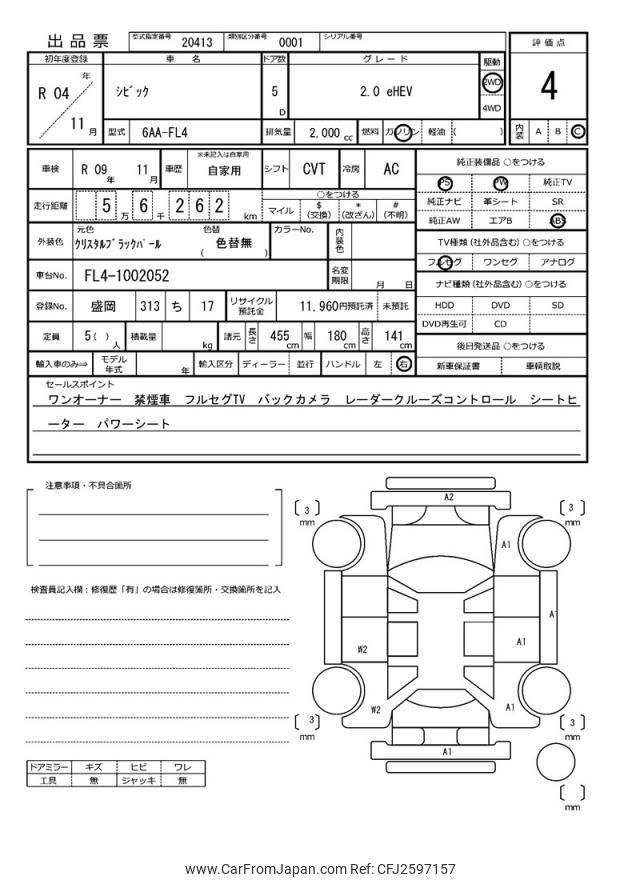 出品票 型式指定番号 20413 類別区分番号 0001 シリアル番号
評価点
4
内装 A B C
初年度登録 車名 ドア数 グレード 駆動
R 04 年 シビック 5 D 2.0 eHEV 2WD
4WD
11 月 型式 6AA-FL4 排気量 2,000 cc 燃料 ガソリン 軽油 ( )
車検 R 09 年 11 月 車歴 ※未記入は自家用 自家用 シフト CVT 冷房 AC
走行距離 5 万 6 千 2 6 2 km ○をつける
マイル $ (交換) * (改ざん) # (不明)
外装色 元色 クリスタルブラックパール 色替 ( 色替無 ) カラーNo. 内装色
車台No. FL4-1002052 名変期限 月 日
登録No. 盛岡 313 ち 17 リサイクル預託金 11,960円預託済 未預託
定員 5( ) 人 積載量 kg 諸元 長さ 455 cm 幅 180 cm 高さ 141 cm
輸入車のみ⇒ モデル年式 年 輸入区分 ディーラー 並行 ハンドル 左 右
純正装備品 ○をつける
PS PW 純正TV
純正ナビ 革シート SR
純正AW エアB ABS
TV種類 (社外品含む) ○をつける
フルセグ ワンセグ アナログ
ナビ種類 (社外品含む) ○をつける
HDD DVD SD
DVD再生可 CD
後日発送品 ○をつける
新車保証書 車輌取説
セールスポイント
ワンオーナー 禁煙車 フルセグTV バックカメラ レーダークルーズコントロール シートヒ
ーター パワーシート
注意事項・不具合箇所
検査員記入欄：修復歴「有」の場合は修復箇所・交換箇所を記入
ドアミラー キズ ヒビ ワレ
工具 無 ジャッキ 無
A2
3 mm
3 mm
A1
A1
W2
A1
W2
A1
3 mm
3 mm
A1
mm
www.CarFromJapan.com Ref: CFJ2597157